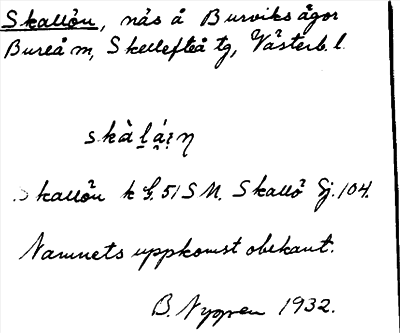 Skallön, näs å Burviks ägor
Bureå m, Skellefteå tg, Västerb. l.
Skallön k G. 51 S N. Skallö Sj. 104.
Namnets uppkomst obekant.
B. Nygren 1932.